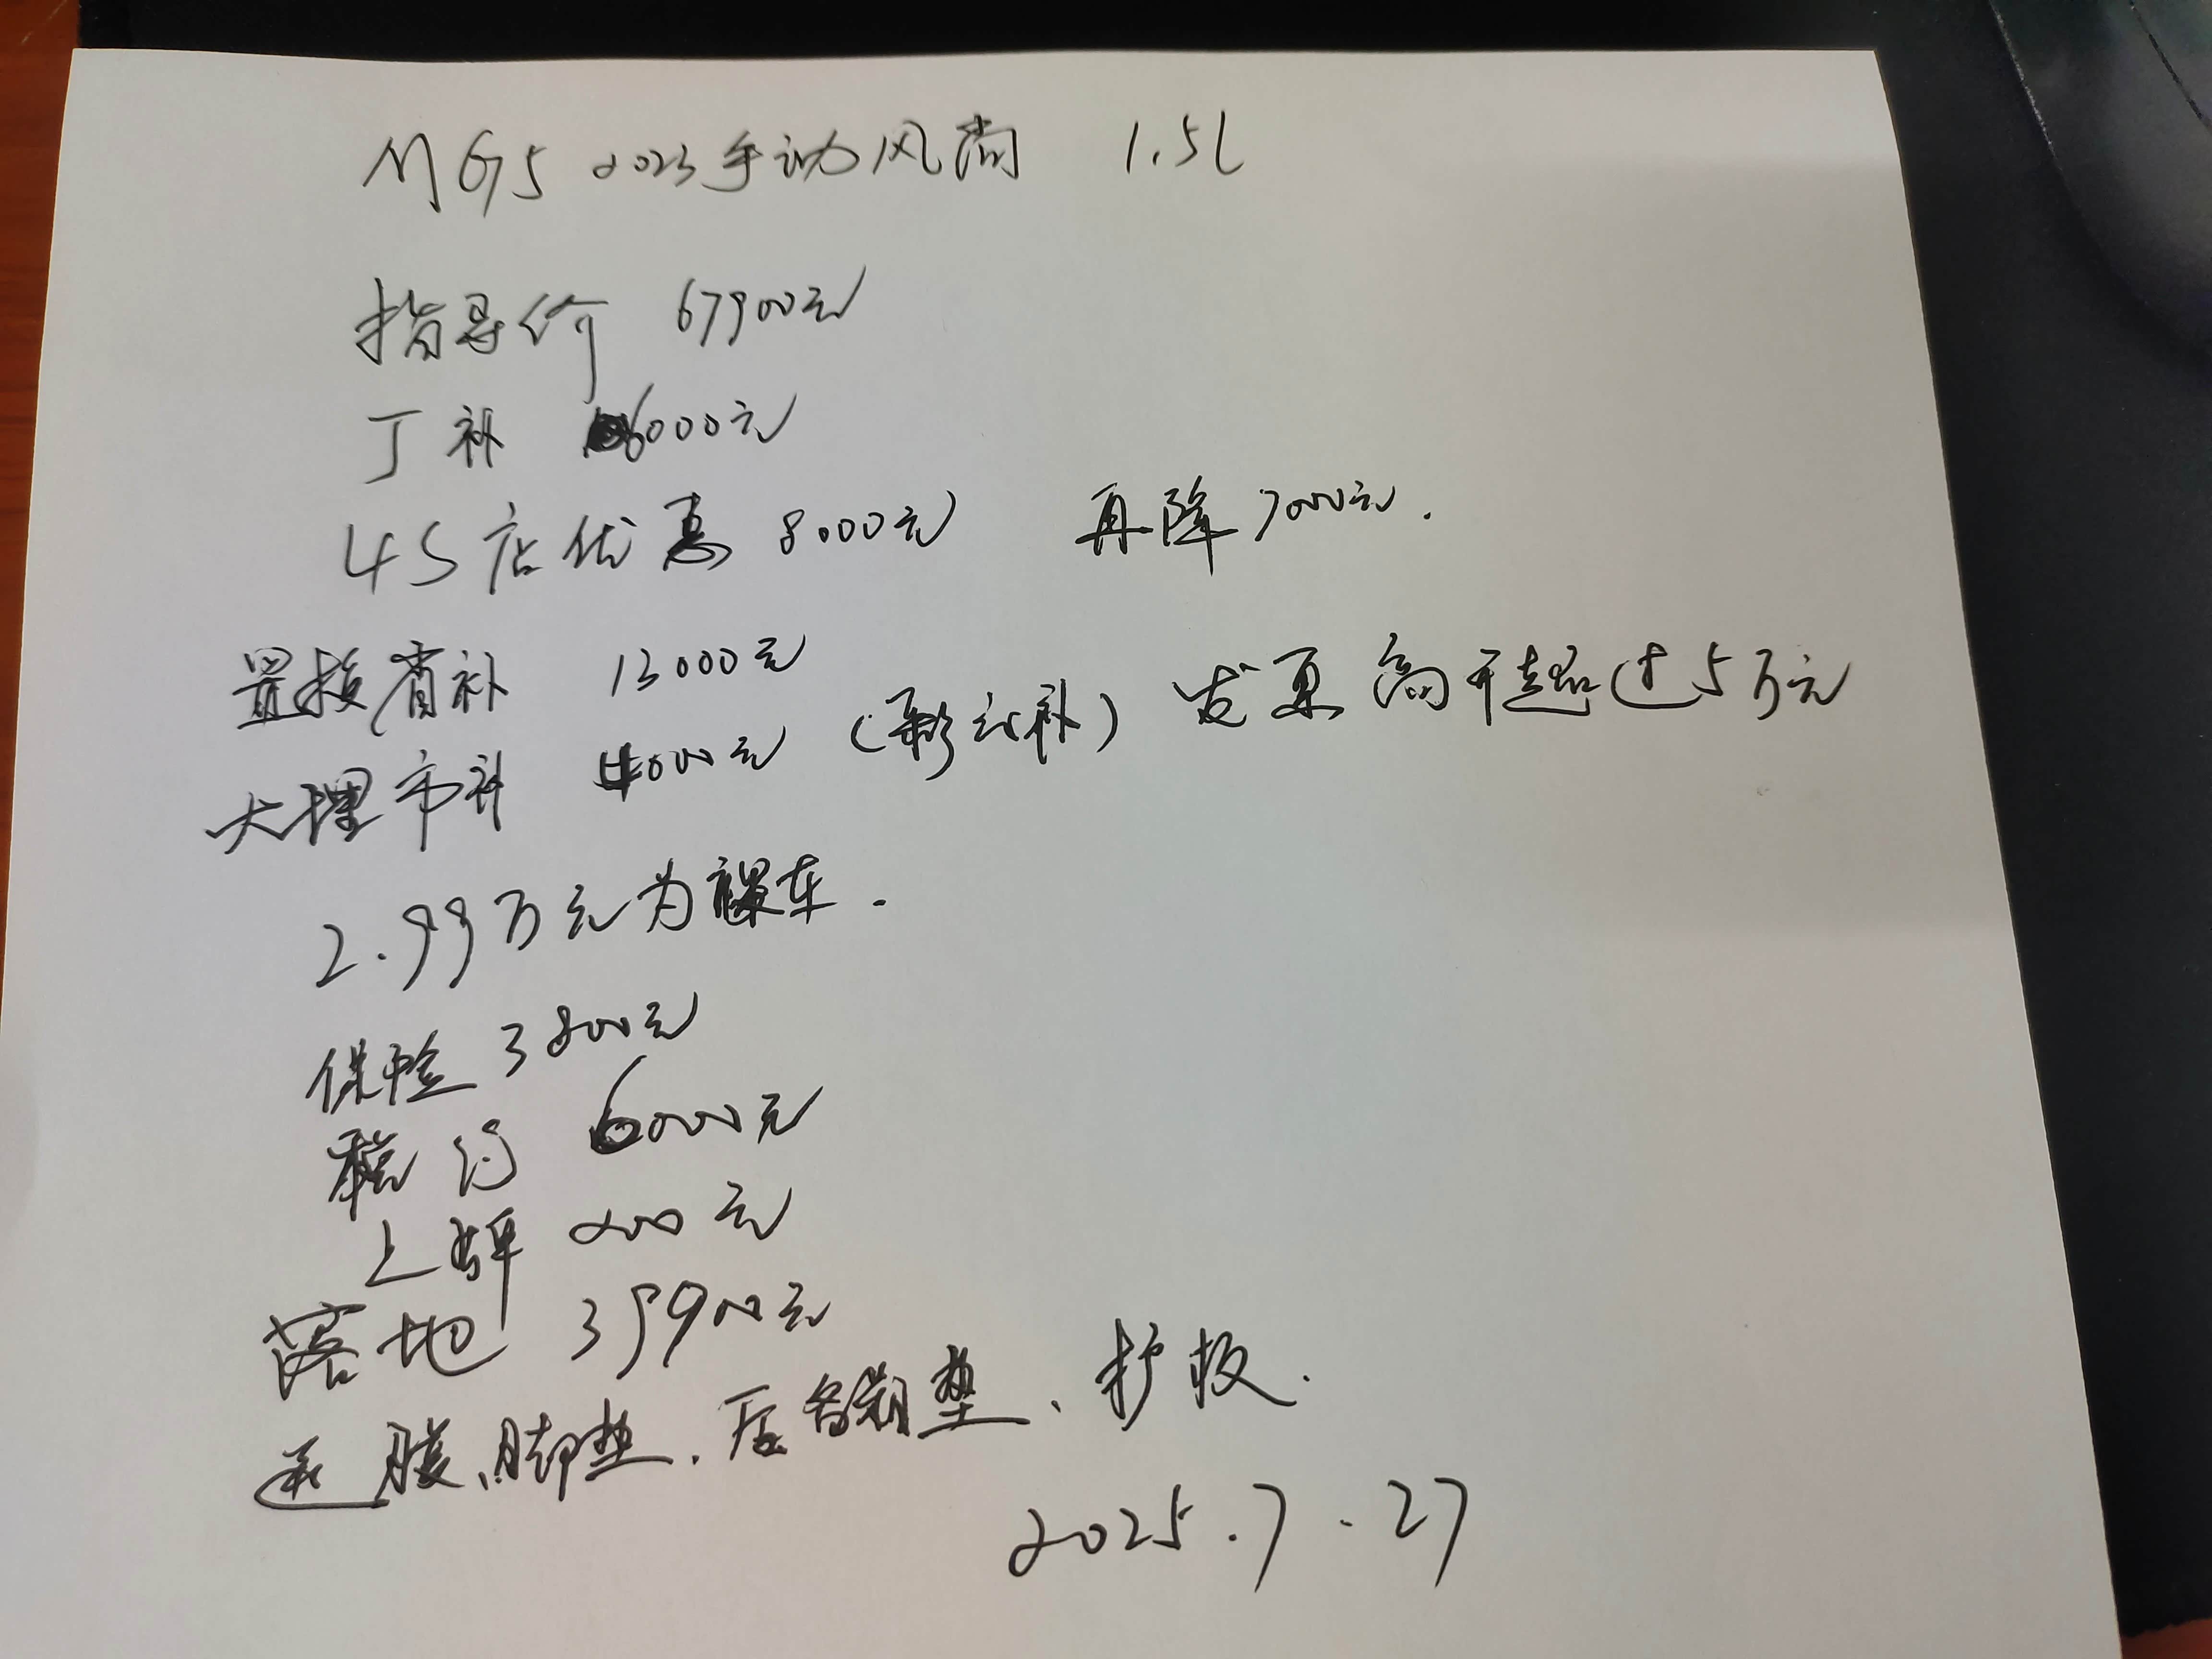 MG5 2023手动风尚 1.5L
指导价 67900元
厂补 6000元
4S店优惠 8000元 再降7000元.
置换省补 13000元
大理市补 4000元 (彩云补) 发票高开超过5万元
2.99万元为裸车.
保险 3800元
税约 6000元
上牌 200元
落地 39900元
送膜、脚垫、后备箱垫、护板.
2025.7.27